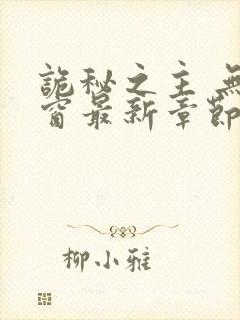 詭秘之主 無
窗最新章節
柳小雅